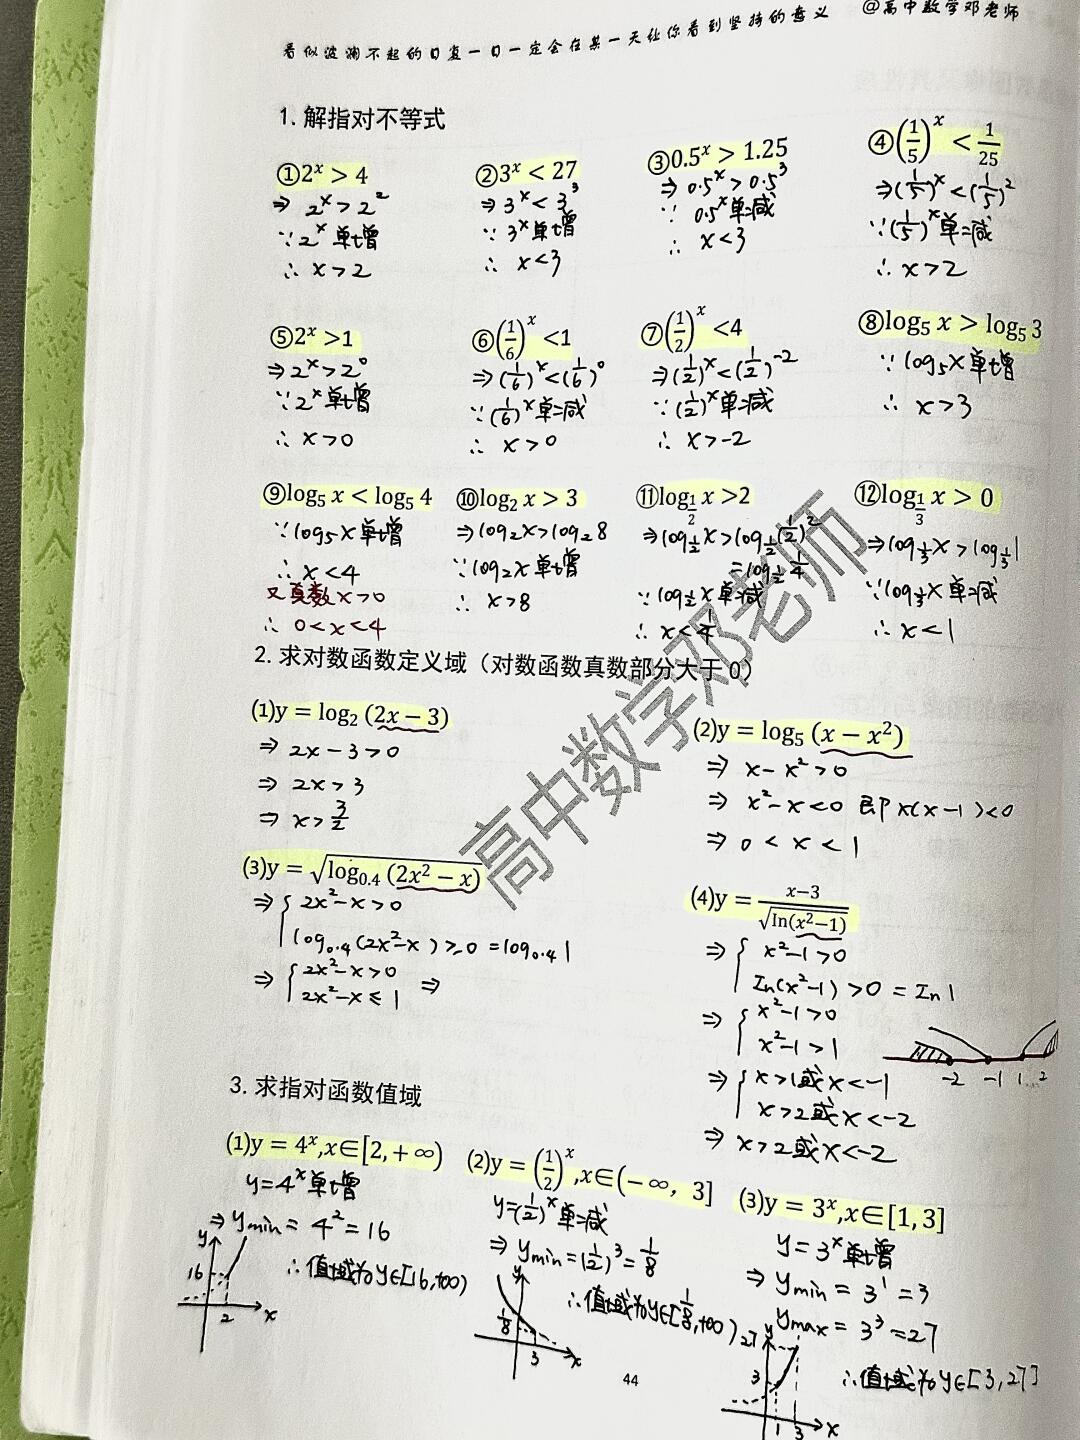 看似波澜不起的日复一日一定会在某一天让你看到坚持的意义 @高中数学邓老师
1. 解指对不等式
①2ˣ > 4
⇒ 2ˣ > 2²
∵ 2ˣ 单增
∴ x > 2
②3ˣ < 27
⇒ 3ˣ < 3³
∵ 3ˣ 单增
∴ x < 3
③0.5ˣ > 1.25
⇒ 0.5ˣ > 0.5³
∵ 0.5ˣ 单减
∴ x < 3
④(1/5)ˣ < 1/25
⇒ (1/5)ˣ < (1/5)²
∵ (1/5)ˣ 单减
∴ x > 2
⑤2ˣ >1
⇒ 2ˣ > 2⁰
∵ 2ˣ 单增
∴ x > 0
⑥(1/6)ˣ <1
⇒ (1/6)ˣ < (1/6)⁰
∵ (1/6)ˣ 单减
∴ x > 0
⑦(1/2)ˣ <4
⇒ (1/2)ˣ < (1/2)⁻²
∵ (1/2)ˣ 单减
∴ x > -2
⑧log₅ x > log₅ 3
∵ log₅x 单增
∴ x > 3
⑨log₅ x < log₅ 4
∵ log₅x 单增
∴ x < 4
又真数 x > 0
∴ 0 < x < 4
⑩log₂ x > 3
⇒ log₂x > log₂8
∵ log₂x 单增
∴ x > 8
⑪log_{1/2} x >2
⇒ log_{1/2} x > log_{1/2} (1/2)²
= log_{1/2} 1/4
∵ log_{1/2} x 单减
∴ x < 1/4
⑫log_{1/3} x > 0
⇒ log_{1/3} x > log_{1/3} 1
∵ log_{1/3} x 单减
∴ x < 1
2. 求对数函数定义域（对数函数真数部分大于 0）
(1)y = log₂ (2x − 3)
⇒ 2x − 3 > 0
⇒ 2x > 3
⇒ x > 3/2
(2)y = log₅ (x − x²)
⇒ x − x² > 0
⇒ x² − x < 0 即 x(x−1) < 0
⇒ 0 < x < 1
(3)y = √(log₀.₄ (2x² − x))
⇒ { 2x² − x > 0
log₀.₄(2x² − x) ≥ 0 = log₀.₄1
⇒ { 2x² − x > 0
2x² − x ≤ 1 ⇒
(4)y = (x−3)/√(ln(x²−1))
⇒ { x² − 1 > 0
In(x²−1) > 0 = In1
⇒ { x² − 1 > 0
x² − 1 > 1
⇒ { x > 1 或 x < −1
x > 2 或 x < −2
⇒ x > 2 或 x < −2
-2 -1 1 2
3. 求指对函数值域
(1)y = 4ˣ,x∈[2, + ∞)
y = 4ˣ 单增
⇒ ymin = 4² = 16
∴ 值域为 y∈[16,+∞)
y
16
2
x
(2)y = (1/2)ˣ,x∈(− ∞, 3]
y = (1/2)ˣ 单减
⇒ ymin = (1/2)³ = 1/8
∴ 值域为 y∈[1/8,+∞)
y
1/8
3
x
(3)y = 3ˣ,x∈[1, 3]
y = 3ˣ 单增
⇒ ymin = 3¹ = 3
ymax = 3³ = 27
∴ 值域为 y∈[3,27]
y
27
3
1 3 x
44
高中数学邓老师